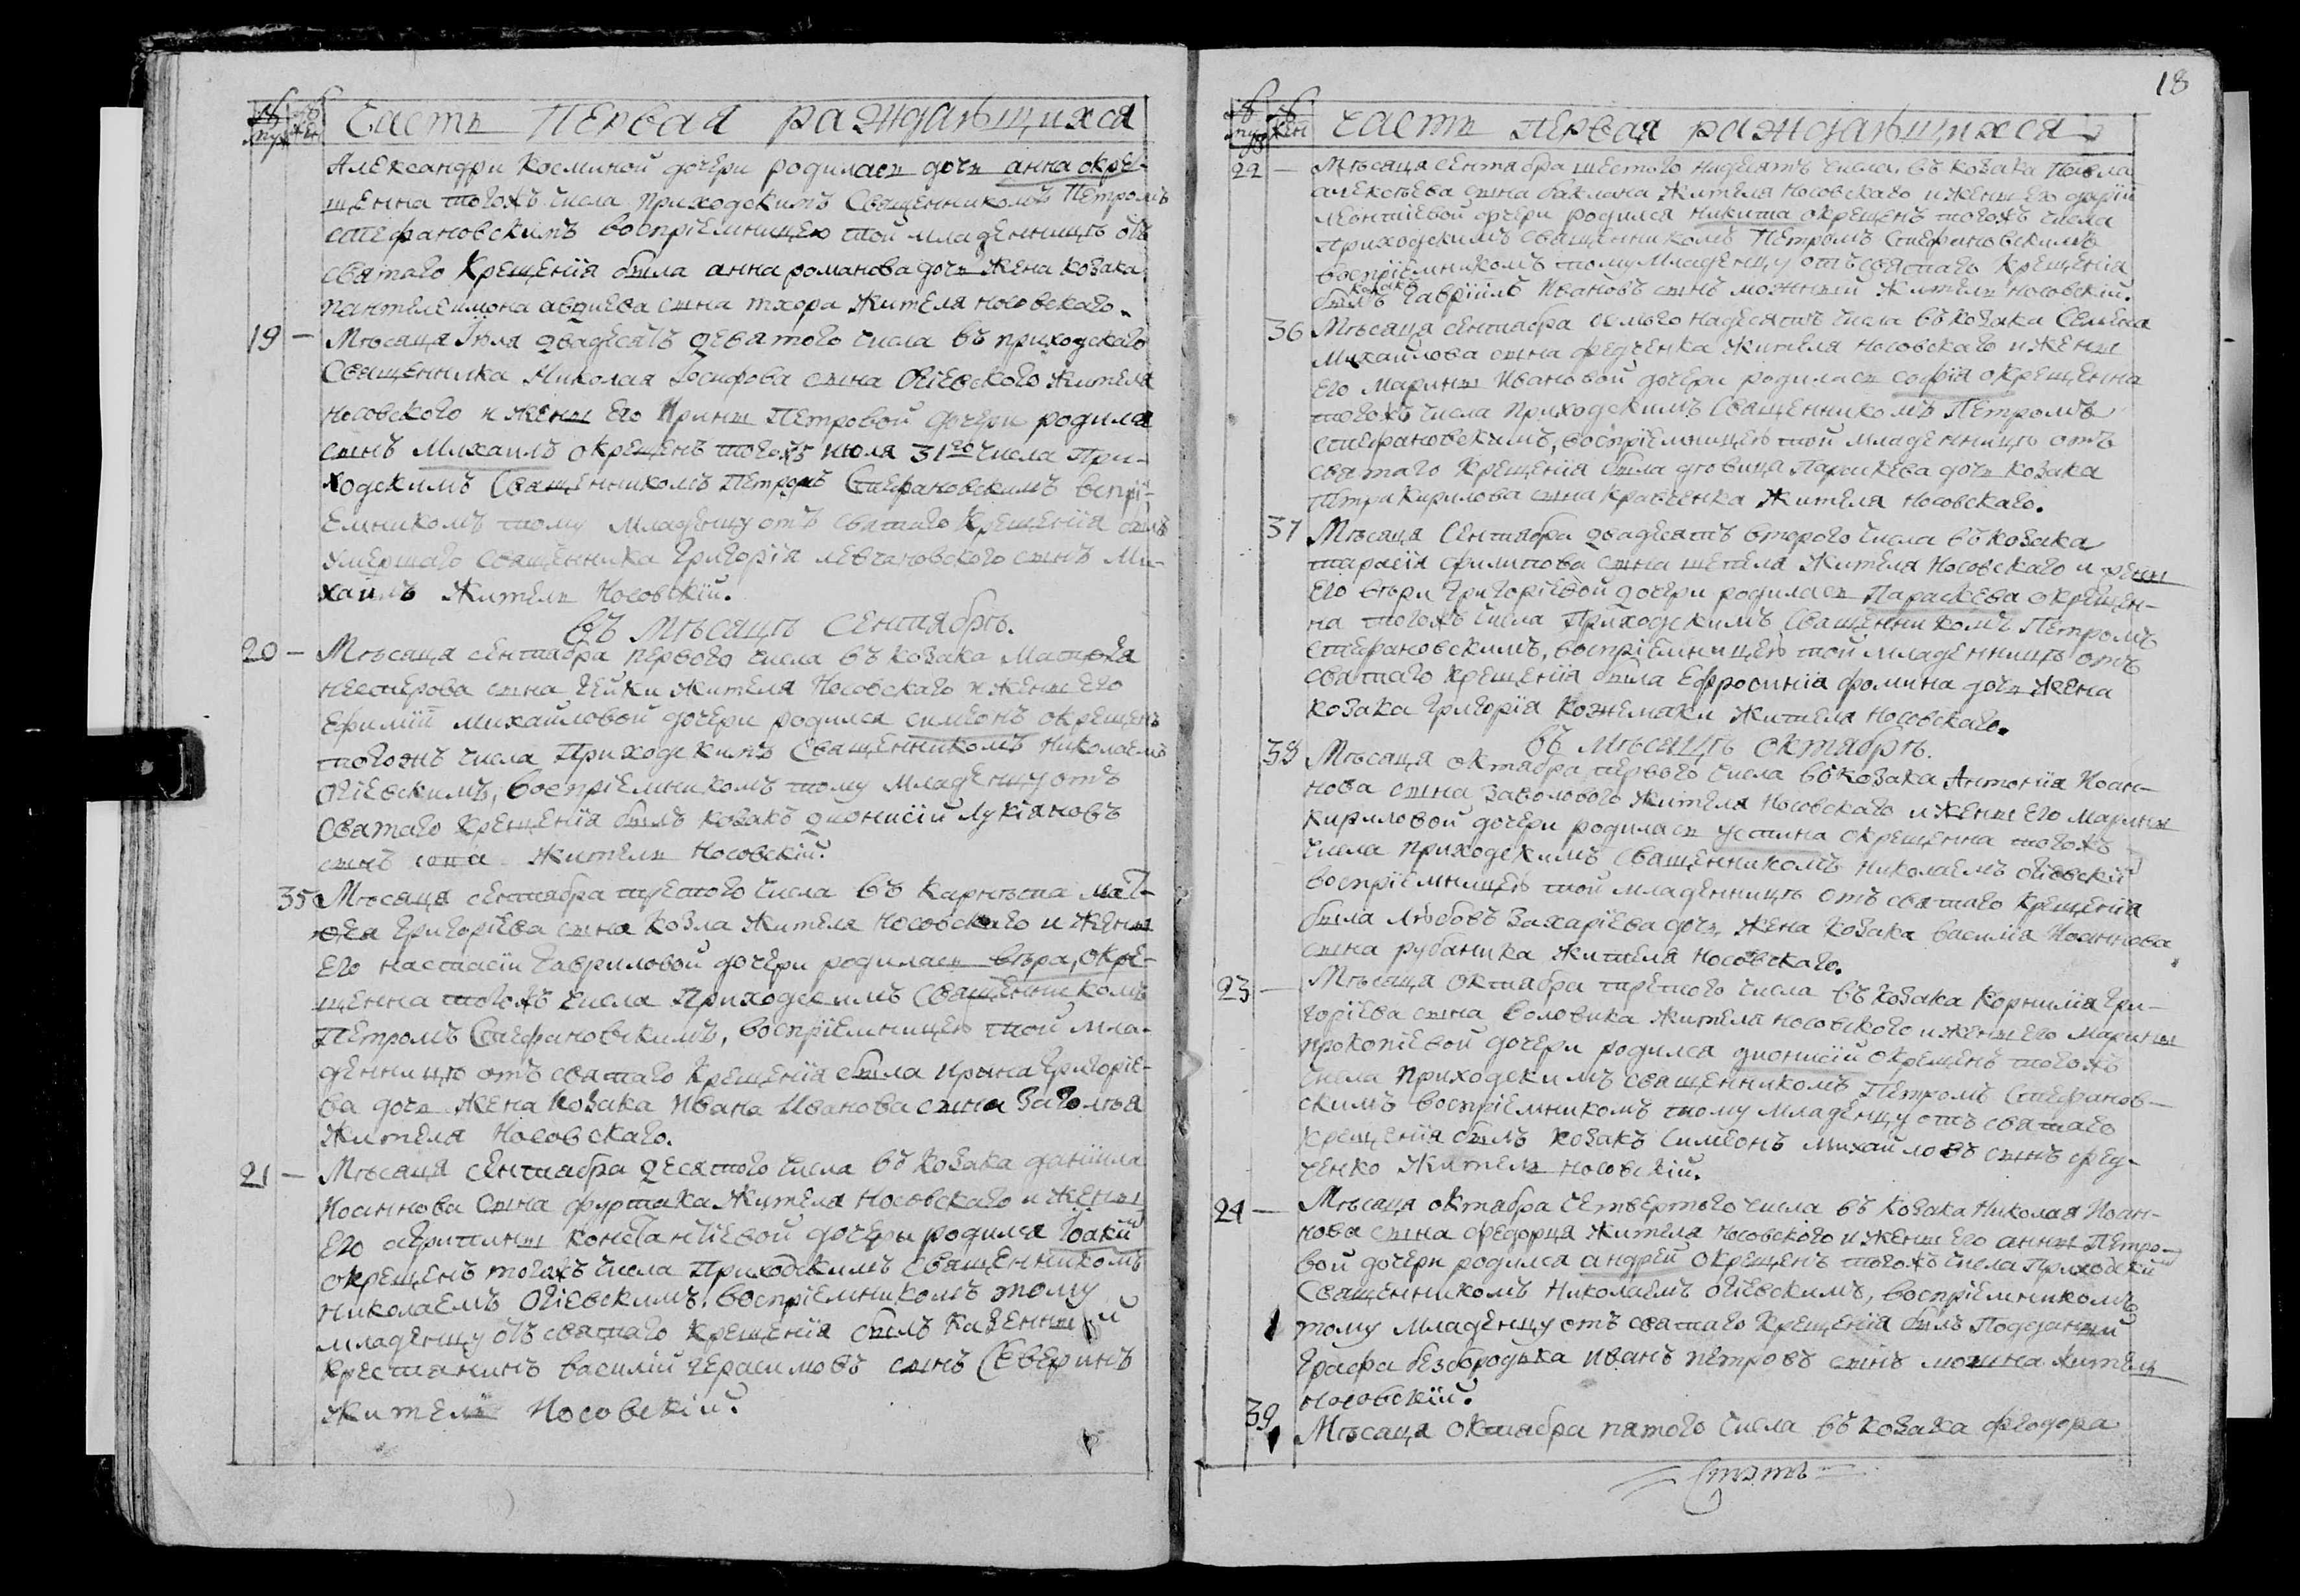 Часть Первая раждающихся
Александри Косминой дочери родилась дочь анна окре-
щенна тогожъ числа приходскимъ Священникомъ Петромъ
стефановскимъ воспріемницею той младенницѣ отъ
святаго Крещенія была анна романова дочь жена козака
пантелеимона авдиева сына тхора жителя носовскаго.
19 — Мѣсяца Іюля двадесятъ девятого числа въ приходскаго
Священника Николая Іосифова сына Огіевского жителя
носовского и жены его Ирины Петровой дочери родился
сынъ Михаилъ окрещенъ тогожъ июля 31го числа При-
ходскимъ Священникомъ Петромъ Стефановскимъ вспрі-
емникомъ тому младенцу отъ святаго крещенія былъ
умершаго священника Григорія левчановского сынъ Ми-
хаилъ житель Носовскій.
въ Мѣсяцѣ Сентябрѣ.
20 — Мѣсяца сентября первого числа въ козака Матфея
нестерова сына гейки жителя Носовскаго и жены его
Ефиміи михайловой дочери родился симеонъ окрещенъ
тогожъ числа Приходскимъ Священникомъ Николаемъ
Огіевскимъ, воспріемникомъ тому младенцу отъ
Святаго крещенія былъ козакъ дионисій Лукіановъ
сынъ житель Носовскій.
35 Мѣсяца сентября третого числа въ Мат-
фея Григоріева сына козла жителя Носовскаго и жены
Его настасіи Гавриловой дочери родилась вѣра, окре-
щенна тогожъ числа Приходскимъ Священникомъ
Петромъ Стефановскимъ, воспріемницею той мла-
денницѣ отъ святаго Крещенія была ирина Григоріе-
ва дочь жена козака Ивана Иванова сына
жителя Носовскаго.
21 — Мѣсяца сентября десятого числа въ козака даніила
Иоаннова сына фуртака жителя Носовскаго и жены
Его агрипины константіевой дочеры родился Іоакій
окрещенъ тогожъ числа Приходскимъ Священникомъ
Николаемъ Огіевскимъ. воспріемникомъ тому
младенцу отъ святаго крещенія былъ казенный
крестианинъ василій герасимовъ сынъ Северинъ
житель Носовскій.
18
Часть первая раждающихся
22 — Мѣсяца сентября шестого надесятъ числа. въ козака Павла
алексѣева сына баклана жителя носовскаго и жены его
леонтіевой дочери родился никита окрещенъ тогожъ числа
Приходскимъ священникомъ Петромъ Стефановскимъ
воспріемникомъ тому младенцу отъ святаго Крещенія
козакъ
былъ Гавріилъ Ивановъ сынъ житель носовскій.
36 Мѣсяца сентября седмого надесятъ числа въ козака Семена
Михайлова сына федченка жителя носовскаго и жены
Его Марины Ивановой дочери родилась софія окрещенна
тогожъ числа Приходскимъ Священникомъ Петромъ
стефановскимъ, воспріемницею той младенницѣ отъ
святаго крещенія была дѣвица Параскева дочь козака
Петра Кирилова сына кравченка жителя носовскаго.
37 Мѣсяца Сентября двадесятъ второго числа въ козака
тарасія филипова сына жителя Носовскаго и жены
Его вѣры Григоріевой дочери родилась Параскева окрещен-
на тогожъ числа Приходскимъ Священникомъ Петромъ
стефановскимъ, воспріемницею той младенницѣ отъ
святаго крещенія была Ефросинія фомина дочь жена
козака Григорія Кожемяки жителя Носовскаго.
въ мѣсяцѣ октябрѣ.
38 Мѣсяца октября первого числа въ козака Антонія Иоан-
нова сына Заволового жителя Носовскаго и жены Его Марины
кириловой дочери родилась устина окрещенна тогожъ
числа приходскимъ священникомъ николаемъ огіевскій
воспріемницею той младенницѣ отъ святаго крещенія
была любовъ захаріева дочь, жена козака василія Иоаннова
сына рубаника жителя носовскаго.
23 — Мѣсяца октября третого числа въ козака Корнилія Гри-
горіева сына воловика жителя носовского и жены его марины
прокопіевой дочери родился дионисій окрещенъ тогожъ
числа приходскимъ священникомъ Петромъ Стефанов-
скимъ воспріемникомъ тому младенцу отъ святаго
крещенія былъ козакъ Симеонъ михайловъ сынъ фед-
ченко житель носовскій.
24 — Мѣсяца октября четвертого числа въ козака Николая Иоан-
нова сына федорця жителя носовского и жены его анны Петро-
вой дочери родился андрей окрещенъ тогожъ числа приходскій
Священникомъ Николаемъ огіевскимъ, воспріемникомъ
тому младенцу отъ святаго крещенія былъ Подданный
Графа безбородька иванъ петровъ сынъ житель
носовскій.
39 Мѣсяца октября пятого числа въ козака феодора